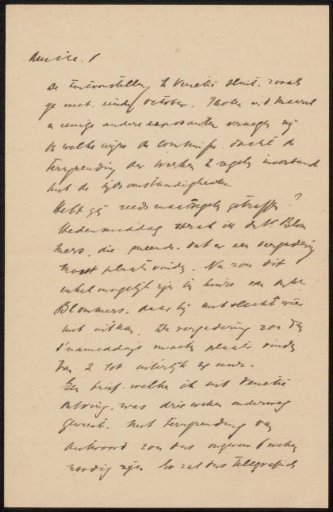 Amice!
De tentoonstelling te Venetië sluit, zooals
ge weet, einde october. Tholen, v. d. Maarel
en eenige andere exposanten vroegen mij
op welke wijze de commissie dacht de
terugzending der werken te regelen in verband
met de tijdsomstandigheden.
Hebt gij reeds maatregelen getroffen?
Hedenmiddag sprak ik den Hr Blom
mers, die meende, dat er een vergadering
moest plaats vinden. Nu zou dit
enkel mogelijk zijn ten huize van den heer
Blommers, daar hij met slecht weer
niet uit kan. De vergadering zou dus
's namiddags moeten plaats vinden
van 2 tot uiterlijk 4 uur.
Een brief, welke ik uit Venetië
ontving, was drie weken onderweg
geweest. Met terugzending van
antwoord zou dus ongeveer 6 weken
noodig zijn. Er zal dus telegrafisch